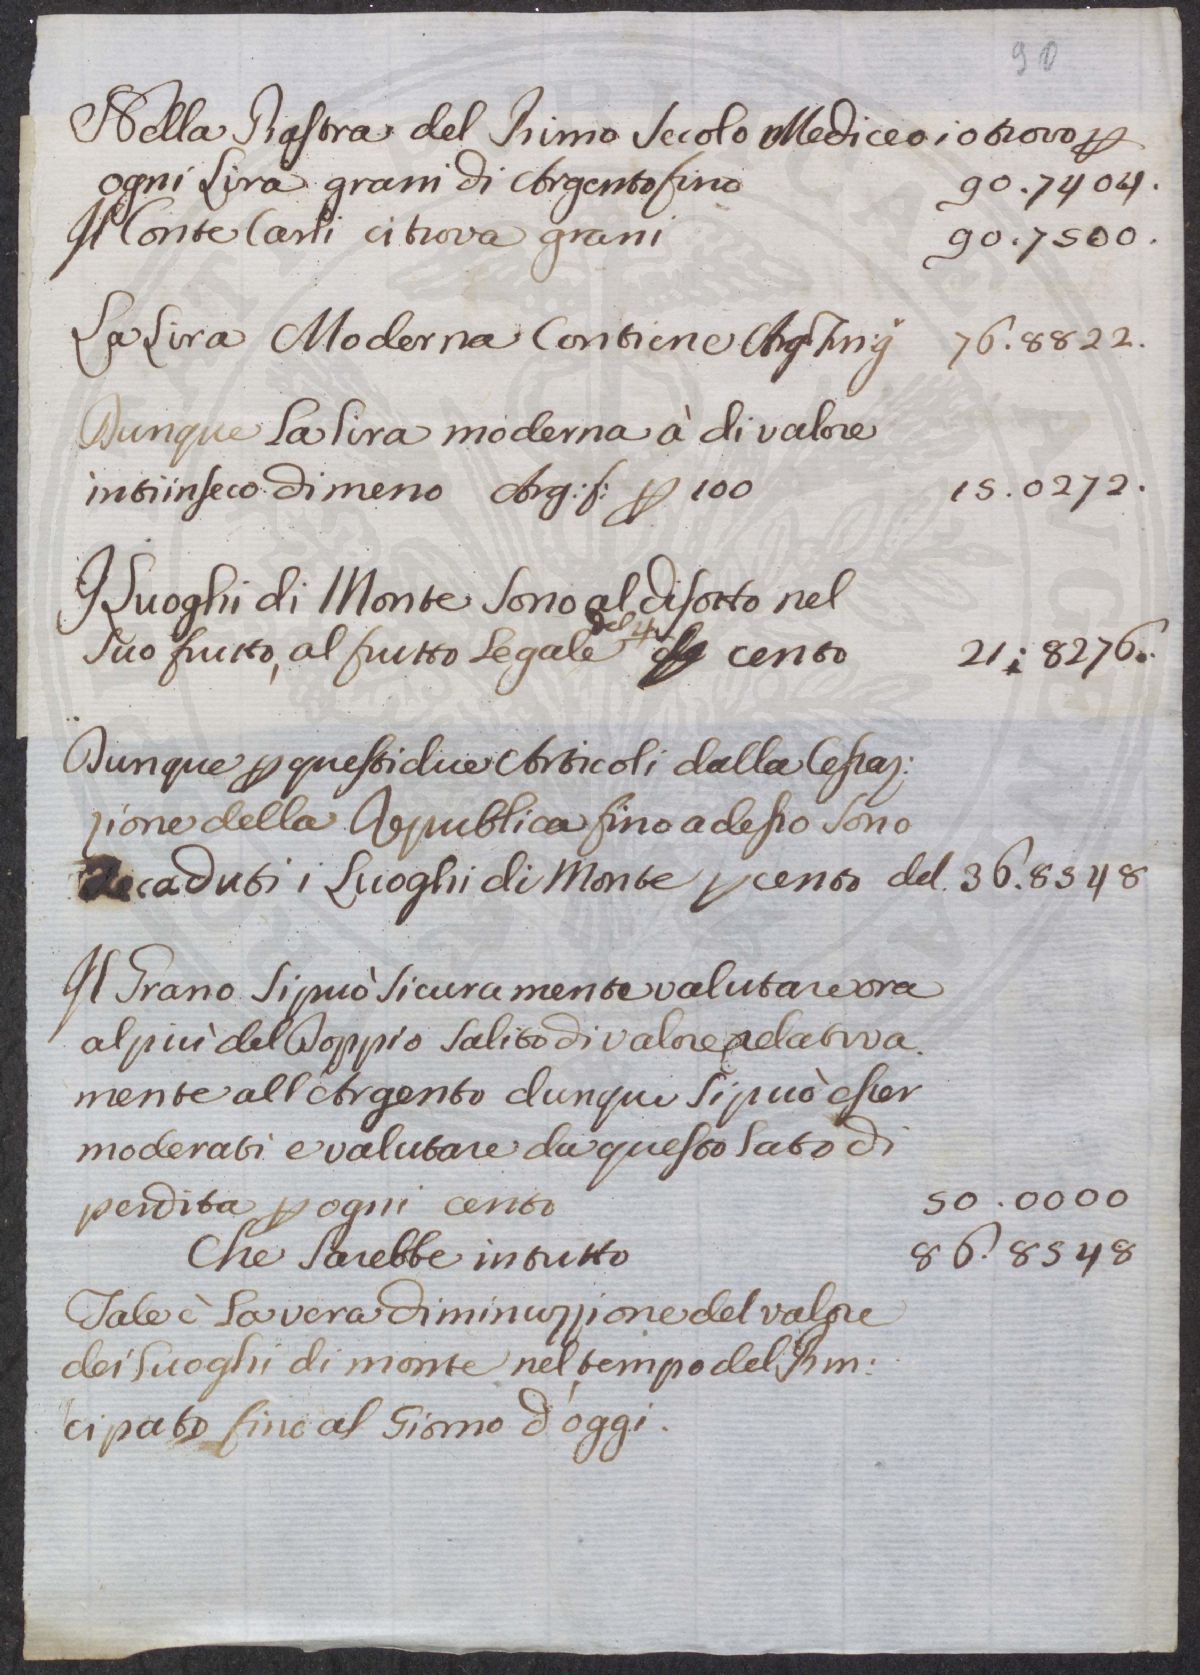 90
Nella Piastra del Primo Secolo Mediceo io trovo p
ogni Lira grani di Argento fino 90.7404.
Il Conte Carli ci trova grani 90.7500.
La Lira Moderna Contiene Arg: 76.8822.
Dunque La Lira moderna à di valore
intrinseco di meno Arg: f: p 100 15.0272.
I Luoghi di Monte Sono al disotto nel
Suo frutto, al frutto Legale del 4 p cento 21.8276.
Dunque p questi due Articoli dalla Cessaz:
zione della Republica fino adesso Sono
decaduti i Luoghi di Monte p cento del 36.8548
Il Grano Si può Sicuramente valutare ora
al più del Doppio Salito di valore relativa
mente all Argento dunque Si può esser
moderati e valutare da questo Lato di
perdita p ogni cento 50.0000
Che Sarebbe in tutto 86.8548
Tale è La vera diminuzzione del valore
dei Luoghi di monte nel tempo del Prin:
cipato fino al Giorno d'oggi.